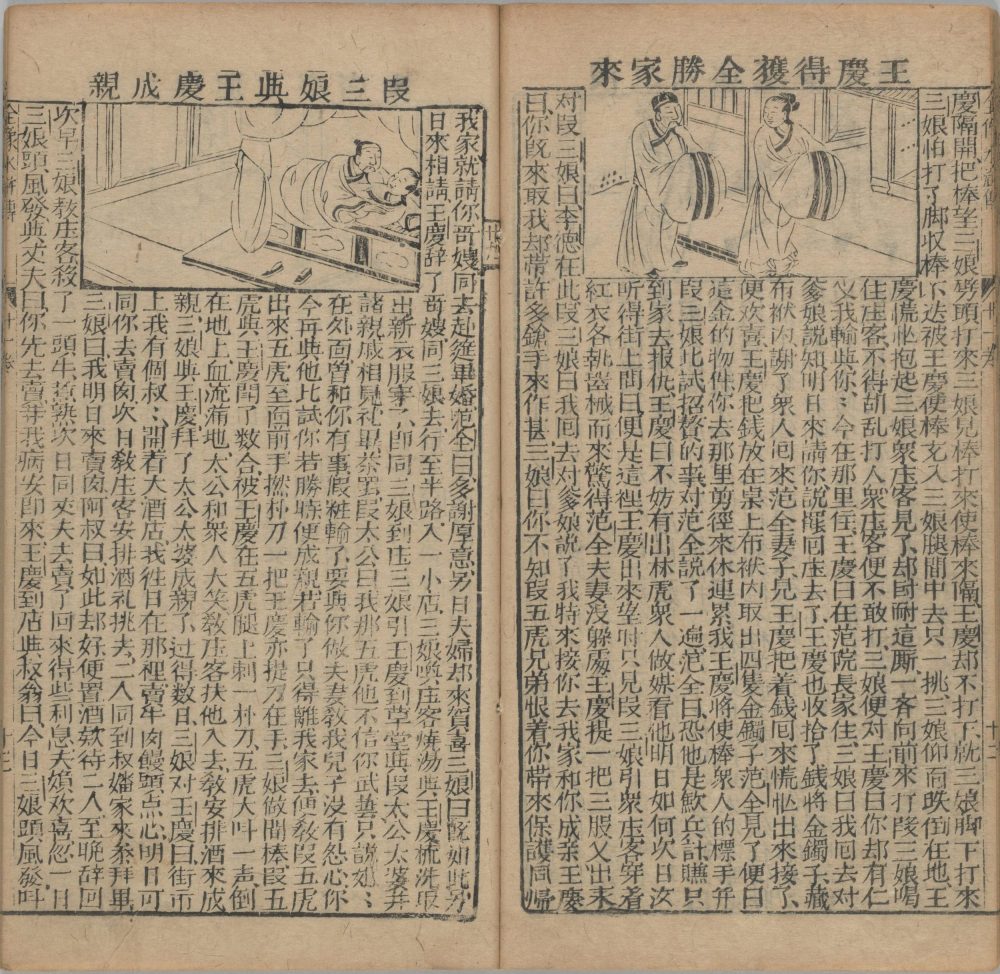 王慶得獲全勝家來
慶隔開把棒望三娘劈頭打來三娘見棒打來使棒來隔王慶却不打下就三娘脚下打來
三娘怕打了脚收棒不迭被王慶便棒充入三娘腿間中去只一挑三娘仰面跌倒在地王
慶慌忙抱起三娘衆庄客見了却囬耐這厮一客向前來打叚三娘喝
住庄客不得胡乱打人衆庄客便不敢打三娘便对王慶曰你却有仁
义我輸與你：今在那里住王慶曰在范院長家住三娘曰我囬去对
爹娘說知明日來請你說罷囬庄去了王慶也收拾了錢將金鐲子藏
布袱内謝了衆人囬來范全妻子見王慶把着錢囬來慌忙出來接了
便欢喜王慶把錢放在桌上布袱内取出四隻金鐲子范全見了便曰
這金的物件你去那里剪徑來休連累我王慶將使棒衆人的標手并
叚三娘比試招贅的事对范全說了一遍范全曰恐他是歀兵計賺只
到家去报仇王慶曰不妨有出林虎衆人做媒看他明日如何次日汝
听得街上問曰便是這裡王慶出來望时只見叚三娘引衆庄客穿着
紅衣各執噐械而來驚得范全夫妻没躲處王慶提一把三股叉出來
对叚三娘曰李德在此叚三娘曰我囬去对爹娘說了我特來接你去我家和你成亲王慶
曰你旣來取我却帶許多鎗手來作甚三娘曰你不知叚五虎兄弟恨着你帶來保護同歸
叚三娘與王慶成親
我家就請你哥嫂同去赴筵畢婚范全曰多謝厚意另日夫婦却來賀喜三娘曰旣如此另
日來相請王慶辞了哥嫂同三娘去行至半路入一小店三娘喚庄客燒湯與王慶梳洗取
出新衣服穿了即同三娘到庄三娘引王慶到草堂與叚太公太婆并
諸親戚相見礼畢茶罢叚太公曰我那五虎他不信你武藝只說你：
在外面曾和你有事假粧輸了要與你做夫妻教我兒子没有怨心你
今再與他比試你若勝時便成親若輸了只得離我家去便敎叚五虎
出來五虎至面前手撚朴刀一把王慶亦提刀在手三娘做間棒叚五
虎與王慶鬥了数合被王慶在五虎腿上刺一朴刀五虎大叫一声倒
在地上血流滿地太公和衆人大笑敎庄客扶他入去敎安排酒來成
親三娘與王慶拜了太公太婆成親了过得数日三娘对王慶曰街市
上我有個叔：開着大酒店我徃日在那裡賣牛肉饅頭点心明日可
同你去賣肉次日敎庄客安排酒礼挑去二人同到叔嬸家來叅拜畢
三娘曰我明日來賣肉阿叔曰如此却好便置酒欵待二人至晚辞回
次早三娘敎庄客殺了一頭牛煑熟次日同丈夫去賣了回來得些利息夫婦欢喜忽一日
三娘頭風發與丈夫曰你先去賣并我病安即來王慶到店與叔翁曰今日三娘頭風發叫